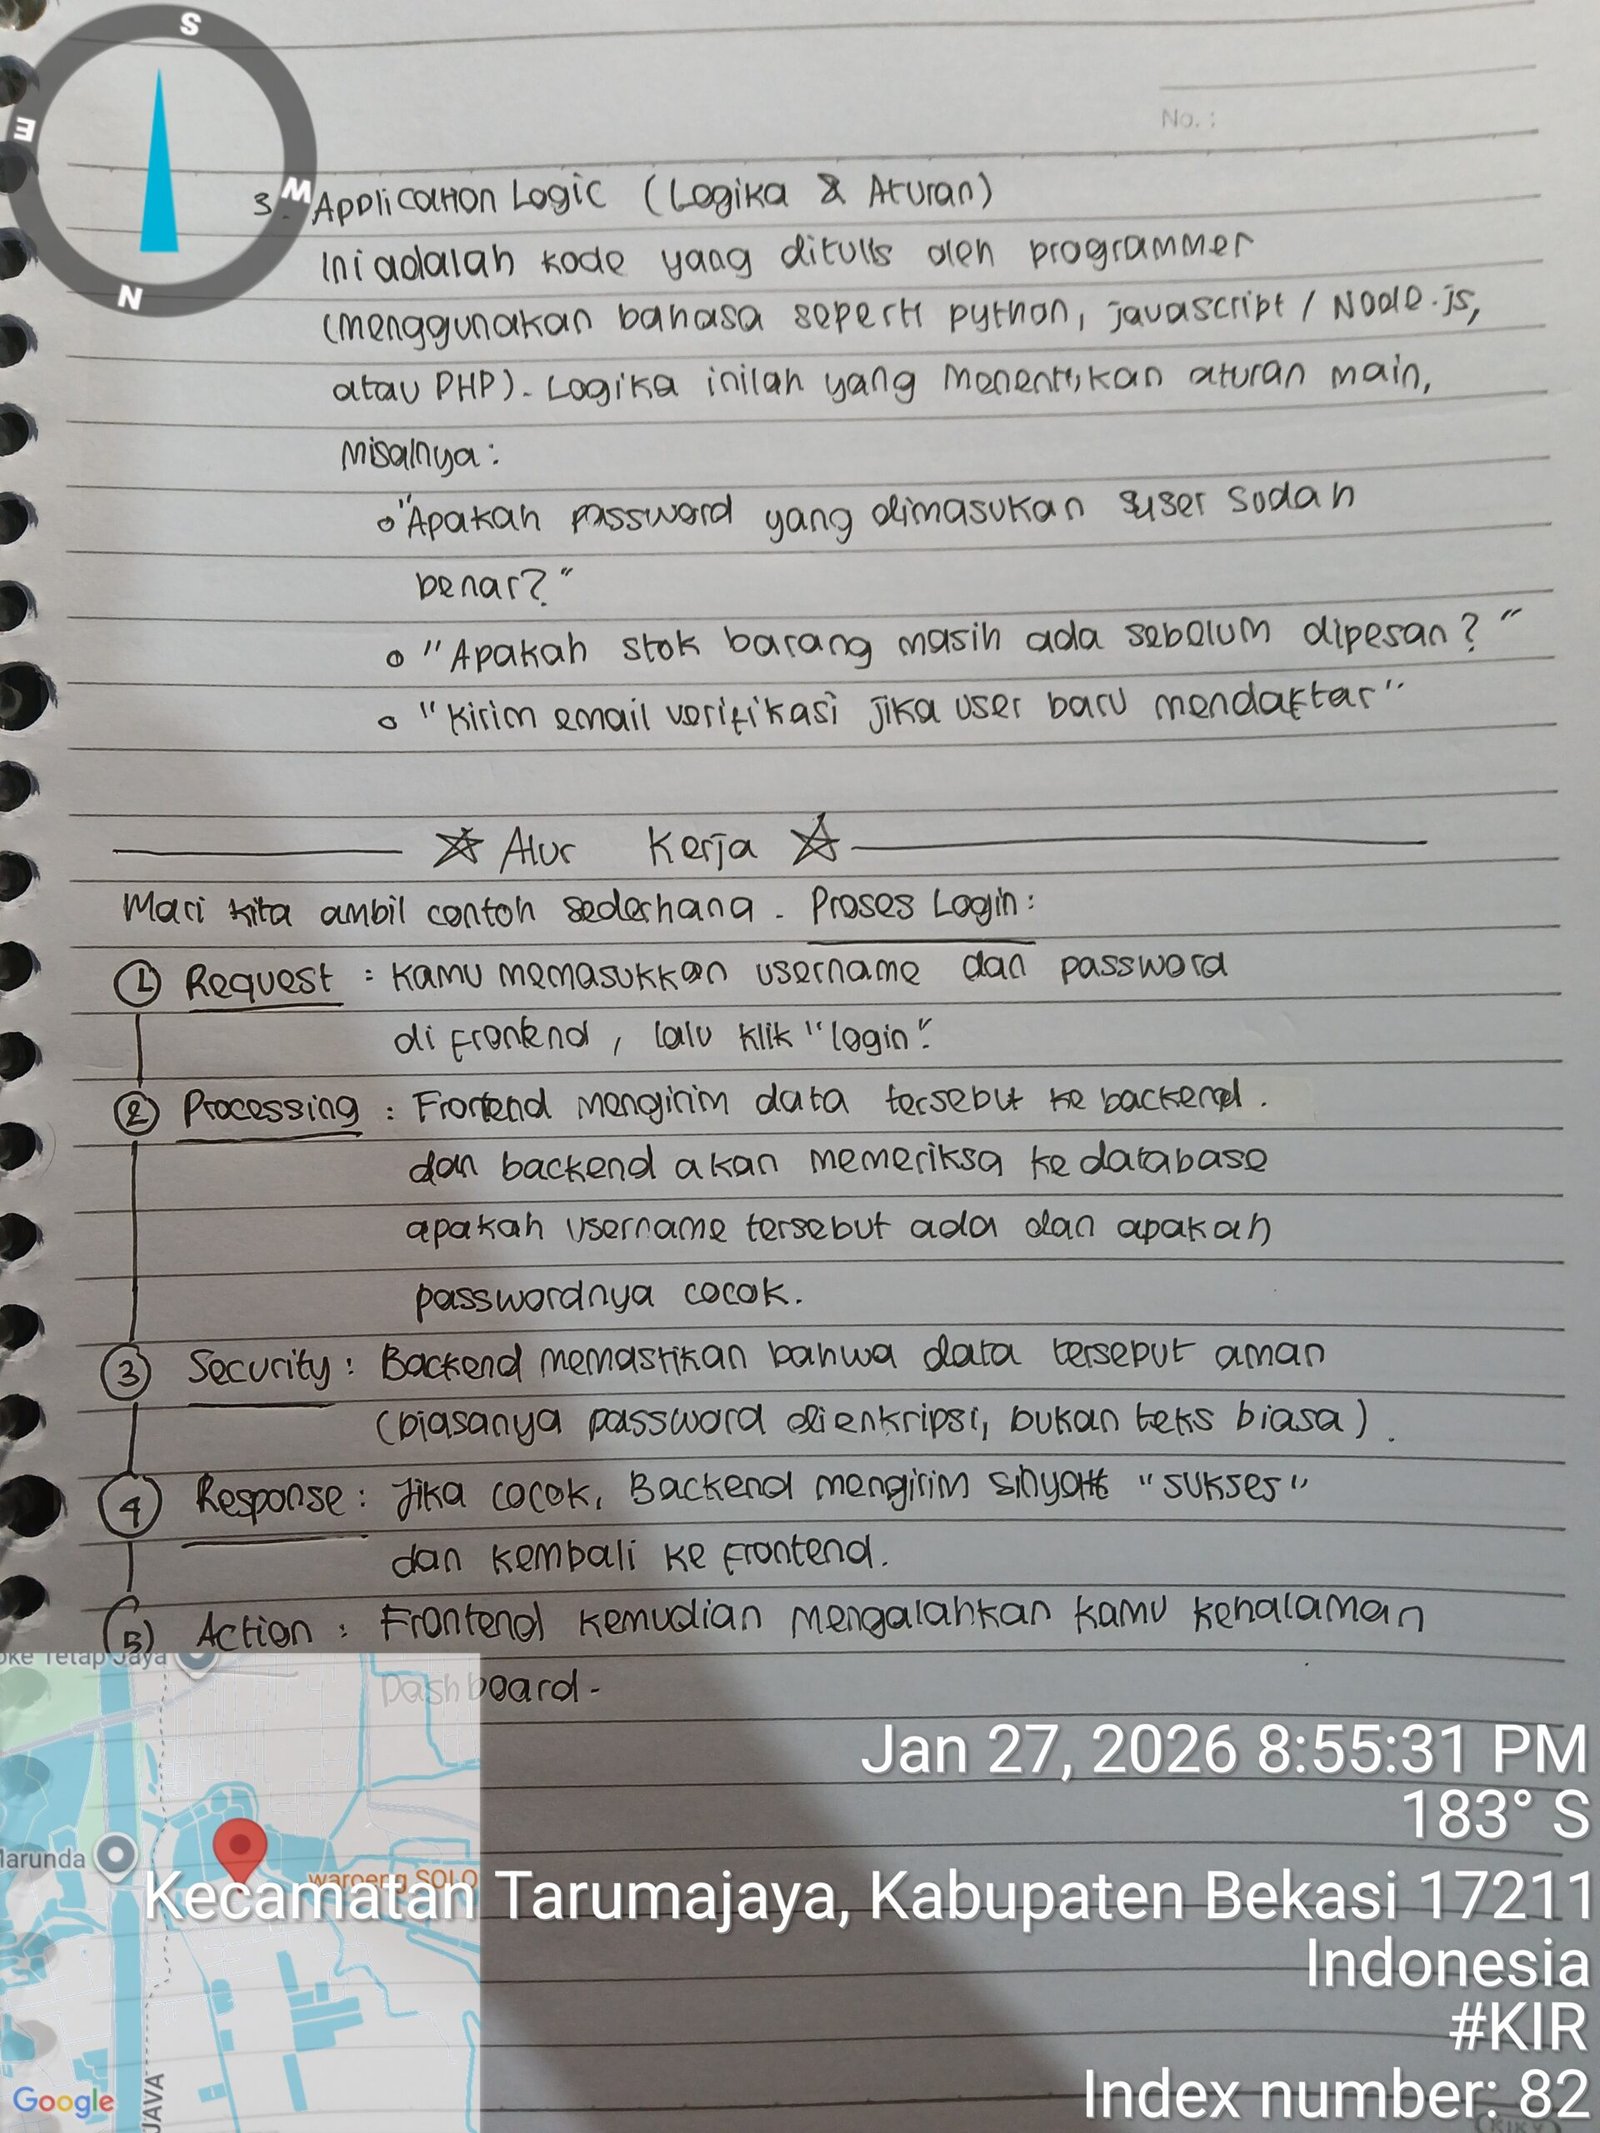 S
E
W
N
No. :
3. Application Logic (Logika & Aturan)
Ini adalah kode yang ditulis oleh programmer
(menggunakan bahasa seperti python, javascript / Node.js,
atau PHP). Logika inilah yang menentukan aturan main,
Misalnya:
o "Apakah password yang dimasukan user sudah
benar?"
o "Apakah stok barang masih ada sebelum dipesan?"
o "Kirim email verifikasi jika user baru mendaftar"
☆ Alur Kerja ☆
Mari kita ambil contoh sederhana. Proses Login:
① Request : Kamu memasukkan username dan password
di frontend, lalu klik "login".
② Processing : Frontend mengirim data tersebut ke backend.
dan backend akan memeriksa ke database
apakah username tersebut ada dan apakah
passwordnya cocok.
③ Security : Backend memastikan bahwa data tersebut aman
(biasanya password dienkripsi, bukan teks biasa).
④ Response : Jika cocok, Backend mengirim sinyal "sukses"
dan kembali ke frontend.
⑤ Action : Frontend kemudian mengalahkan kamu kehalaman
Dashboard.
oke Tetap Jaya
Jan 27, 2026 8:55:31 PM
183° S
Marunda
waroeng SOLO
Kecamatan Tarumajaya, Kabupaten Bekasi 17211
Indonesia
#KIR
Index number: 82
Google
JAVA